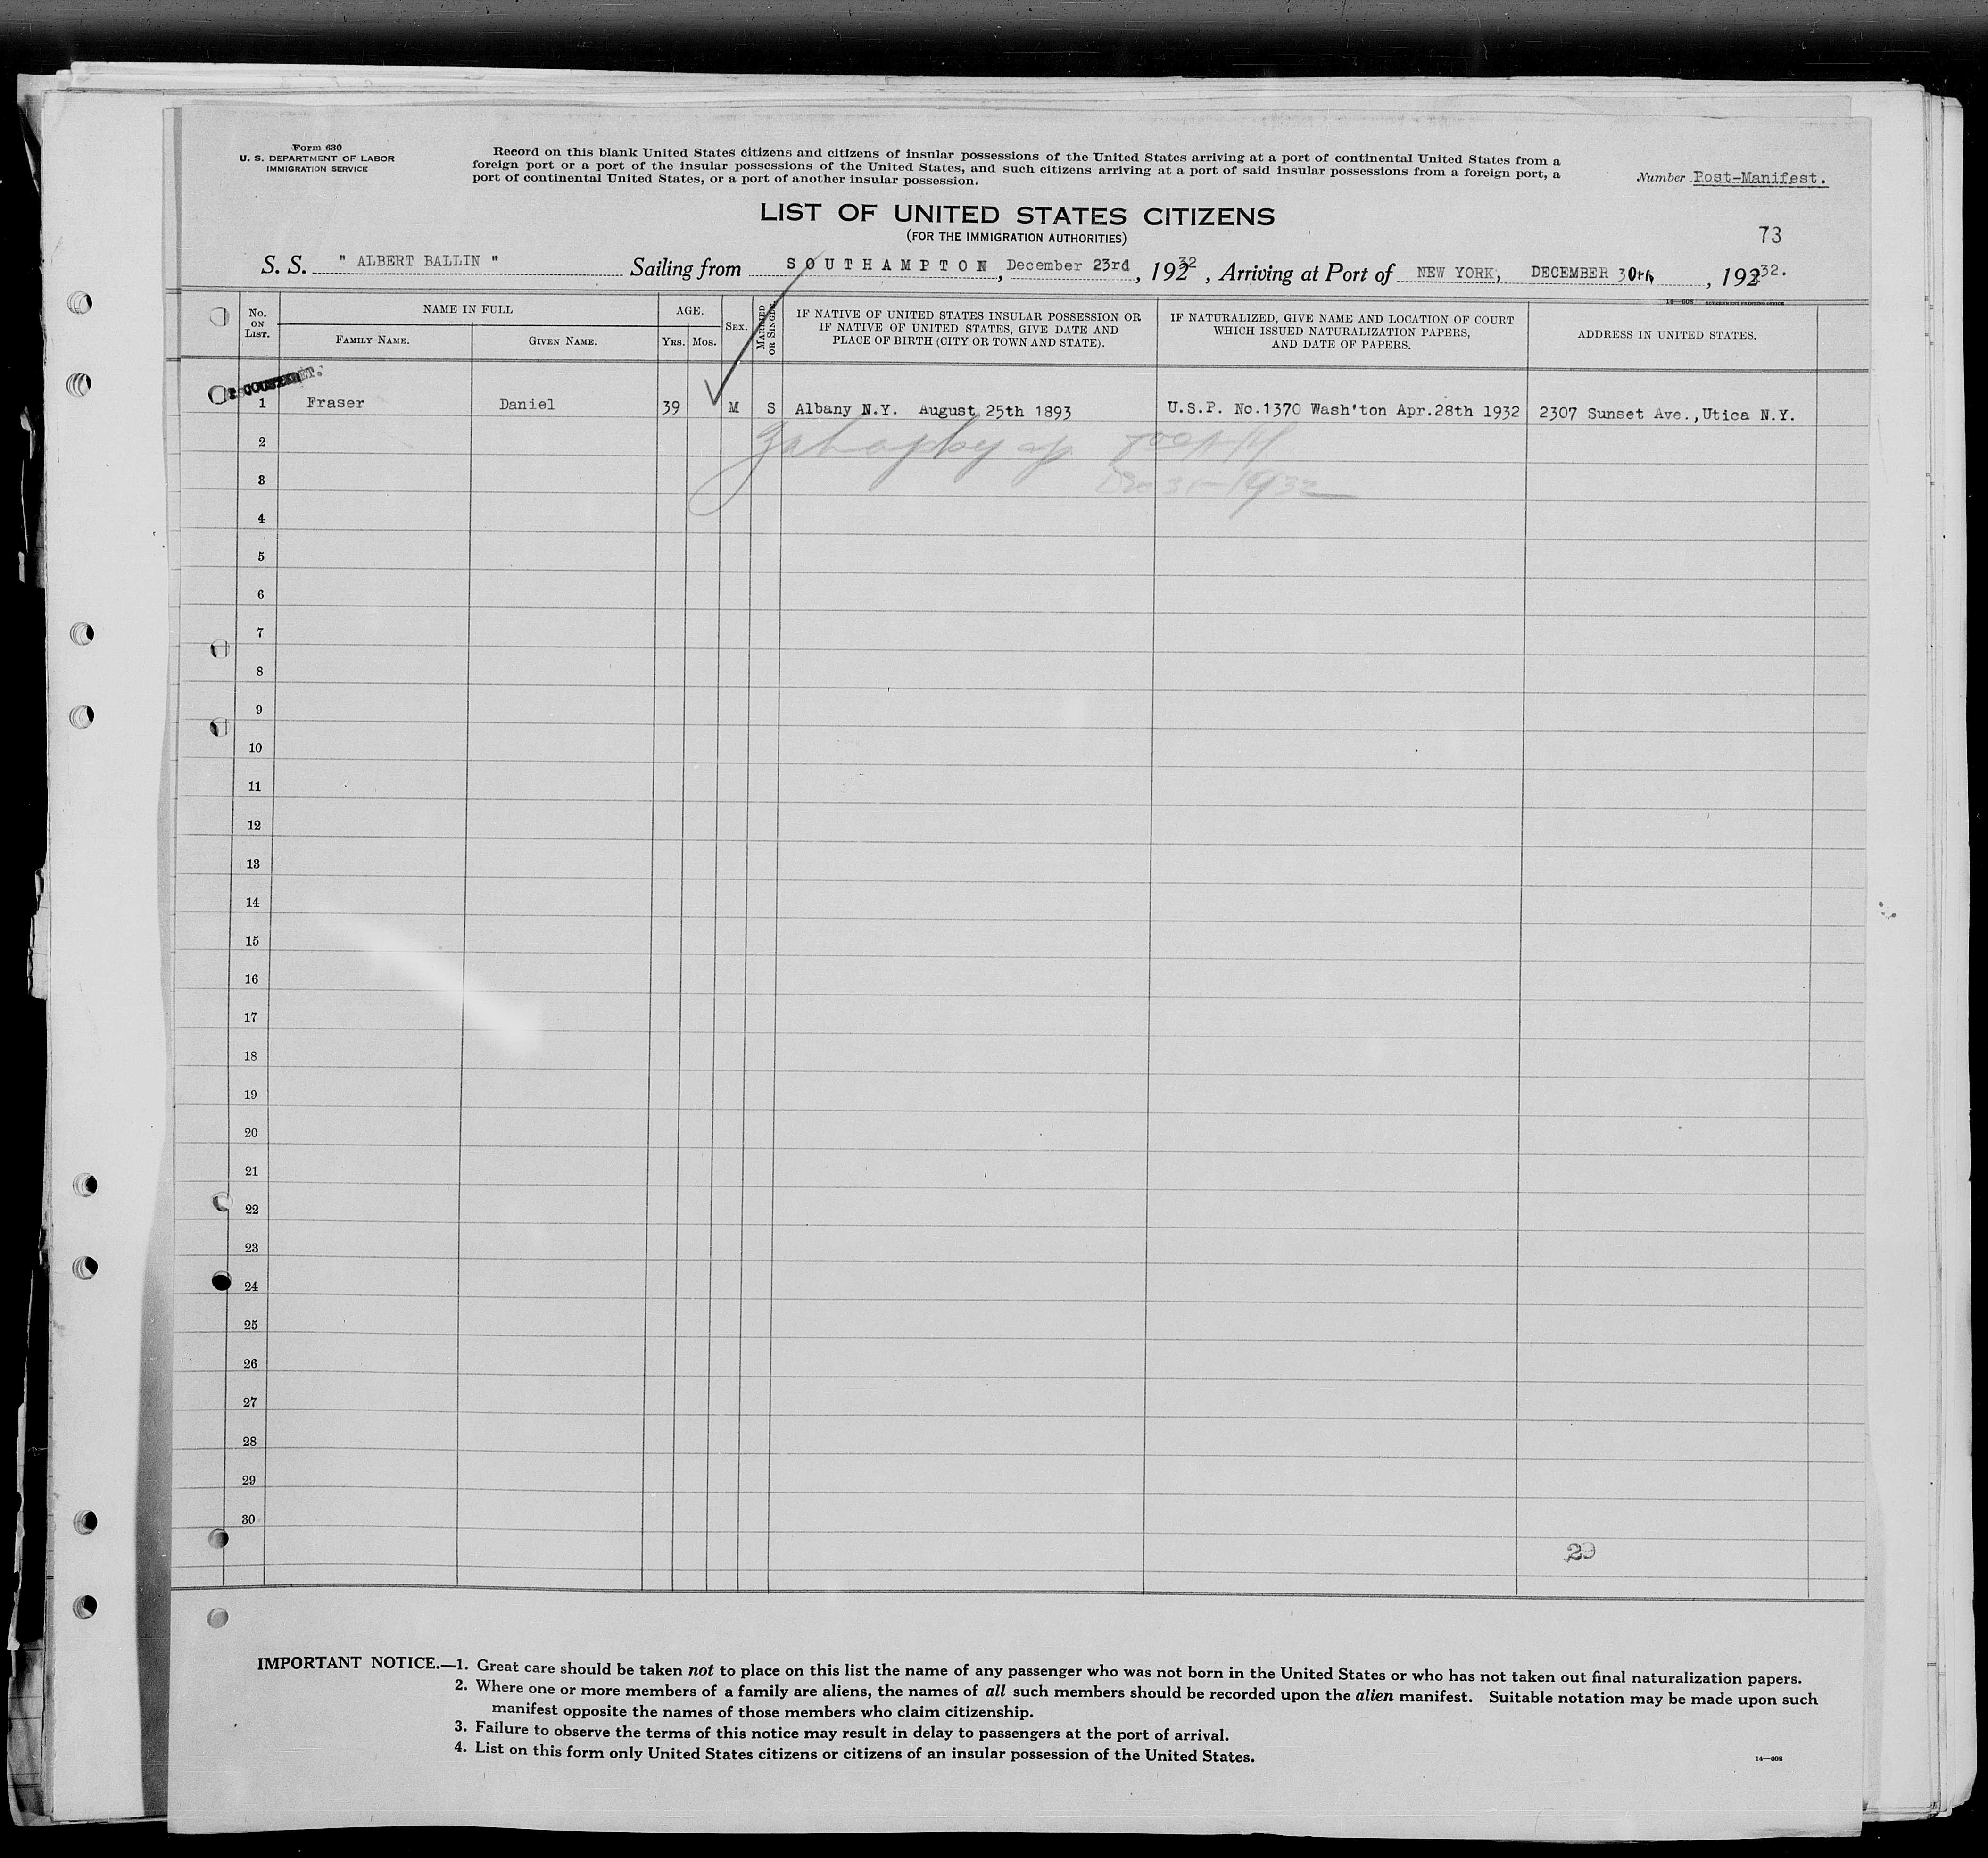 Form 630
U. S. DEPARTMENT OF LABOR
IMMIGRATION SERVICE
Record on this blank United States citizens and citizens of insular possessions of the United States arriving at a port of continental United States from a
foreign port or a port of the insular possessions of the United States, and such citizens arriving at a port of said insular possessions from a foreign port, a
port of continental United States, or a port of another insular possession.
Number Post-Manifest.
LIST OF UNITED STATES CITIZENS
(FOR THE IMMIGRATION AUTHORITIES)
73
S. S. " ALBERT BALLIN " Sailing from SOUTHAMPTON, December 23rd, 19232, Arriving at Port of NEW YORK, DECEMBER 30th, 19232.
14—608 GOVERNMENT PRINTING OFFICE
No. ON LIST.
NAME IN FULL
FAMILY NAME.
GIVEN NAME.
AGE.
YRS.
MOS.
SEX.
MARRIED OR SINGLE.
IF NATIVE OF UNITED STATES INSULAR POSSESSION OR
IF NATIVE OF UNITED STATES, GIVE DATE AND
PLACE OF BIRTH (CITY OR TOWN AND STATE).
IF NATURALIZED, GIVE NAME AND LOCATION OF COURT
WHICH ISSUED NATURALIZATION PAPERS,
AND DATE OF PAPERS.
ADDRESS IN UNITED STATES.
1 Fraser Daniel 39 M S Albany N.Y. August 25th 1893 U.S.P. No.1370 Wash'ton Apr.28th 1932 2307 Sunset Ave., Utica N.Y.
2
3
Dec 31-1932
4
5
6
7
8
9
10
11
12
13
14
15
16
17
18
19
20
21
22
23
24
25
26
27
28
29
30
29
IMPORTANT NOTICE.—1. Great care should be taken not to place on this list the name of any passenger who was not born in the United States or who has not taken out final naturalization papers.
2. Where one or more members of a family are aliens, the names of all such members should be recorded upon the alien manifest. Suitable notation may be made upon such
manifest opposite the names of those members who claim citizenship.
3. Failure to observe the terms of this notice may result in delay to passengers at the port of arrival.
4. List on this form only United States citizens or citizens of an insular possession of the United States.
14—608